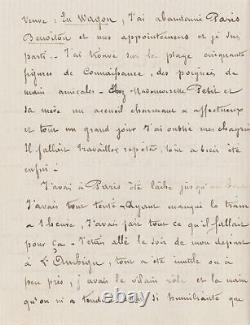 venue : En Wagon, J'ai abandonné Paris
Benoiton et nos appointements et je suis
parti. J'ai trouvé sur la plage cinquante
figures de Connaissance, des poignées de
main amicales - Chez Mademoiselle Petit et
sa mère un accueil charmant & affectueux
et tout un grand jour j'ai oublié mes chagrins
Il fallait travailler répéter, tout a bien été
enfin.
J'avais à Paris été lâche jusqu'au
J'avais tout tenté - Ayant manqué le train
à 1 heure, j'avais fait tout ce qu'il fallait
pour ça. J'étais allé le soir de mon départ
à l'Ambigu, tout a été inutile ou à
peu près, j'avais le vilain rôle et la main
qu'on m'a tendue était si humiliante que